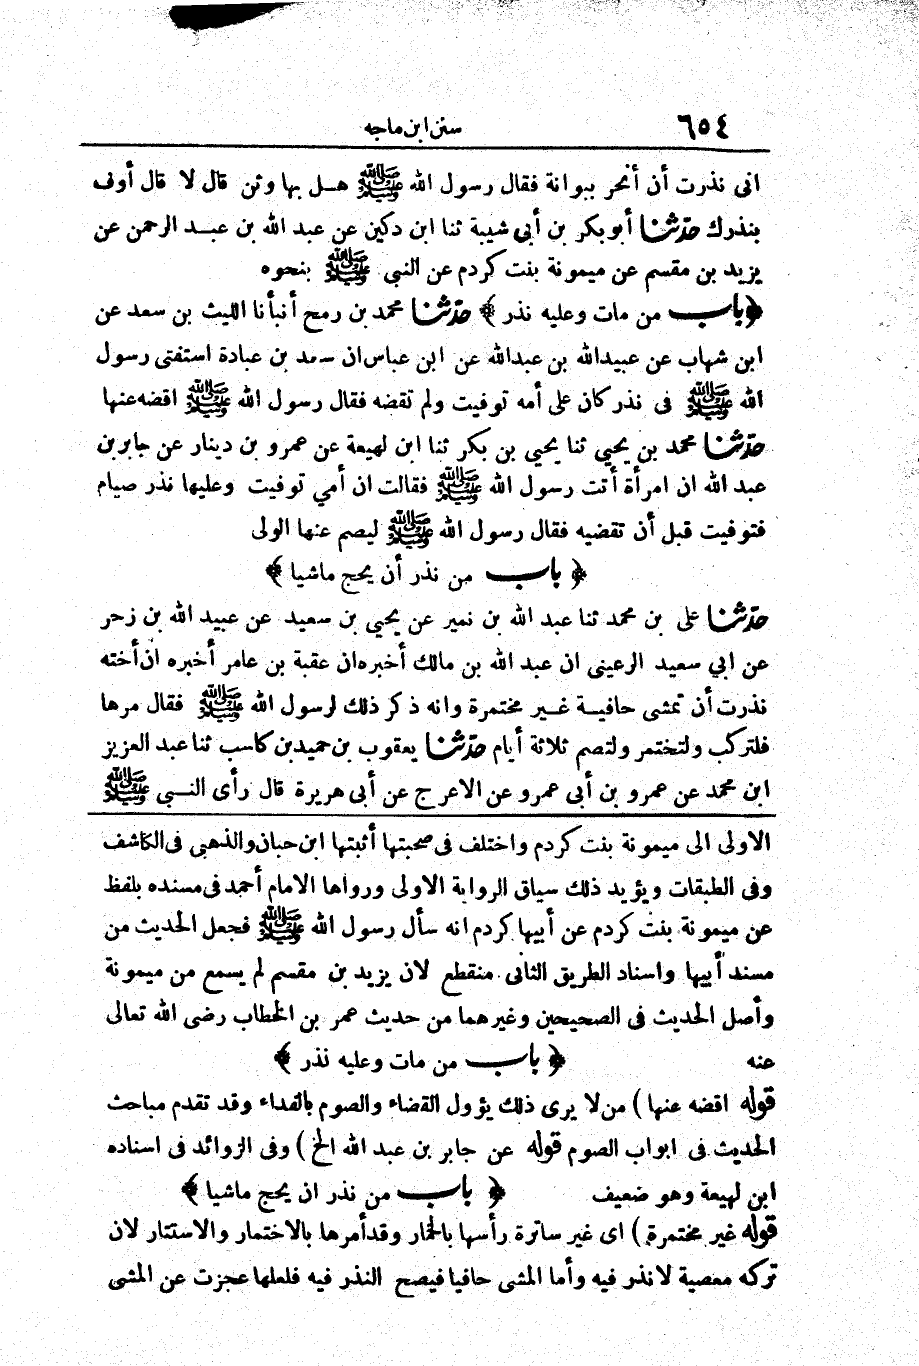 ٦٥٤
سنن ابن ماجه
انى نذرت أن أنحر ببوانة فقال رسول الله ﷺ هل بها وثن قال لا قال أوف
بنذرك حدّثنا أبو بكر بن أبي شيبة ثنا ابن دكين عن عبد الله بن عبد الرحمن عن
يزيد بن مقسم عن ميمونة بنت كردم عن النبى ﷺ بنحوه
﴿باب من مات وعليه نذر﴾ حدّثنا محمد بن رمح أنبأنا الليث بن سعد عن
ابن شهاب عن عبيدالله بن عبدالله عن ابن عباس ان سعد بن عبادة استفتى رسول
الله ﷺ فى نذر كان على أمه توفيت ولم تقضه فقال رسول الله ﷺ اقضه عنها
حدّثنا محمد بن يحيي ثنا يحيي بن بكر ثنا ابن لهيعة عن عمرو بن دينار عن جابر بن
عبد الله ان امرأة أتت رسول الله ﷺ فقالت ان أمي توفيت وعليها نذر صيام
فتوفيت قبل أن تقضيه فقال رسول الله ﷺ ليصم عنها الولى
﴿باب من نذر أن يحج ماشيا﴾
حدّثنا على بن محمد ثنا عبد الله بن نمير عن يحيي بن سعيد عن عبيد الله بن زحر
عن ابي سعيد الرعينى ان عبد الله بن مالك أخبره ان عقبة بن عامر أخبره ان أخته
نذرت أن تمشى حافية غير مختمرة وانه ذكر ذلك لرسول الله ﷺ فقال مرها
فلتركب ولتختمر ولتصم ثلاثة أيام حدّثنا يعقوب بن حميد بن كاسب ثنا عبد العزيز
ابن محمد عن عمرو بن أبى عمرو عن الاعرج عن أبى هريرة قال رأى النبى ﷺ
الاولى الى ميمونة بنت كردم واختلف فى صحبتها أثبتها ابن حبان والذهبى فى الكاشف
وفى الطبقات ويؤيد ذلك سياق الرواية الاولى ورواها الامام أحمد فى مسنده بلفظ
عن ميمونة بنت كردم عن أبيها كردم انه سأل رسول الله ﷺ فجعل الحديث من
مسند أبيها واسناد الطريق الثانى منقطع لان يزيد بن مقسم لم يسمع من ميمونة
وأصل الحديث فى الصحيحين وغيرهما من حديث عمر بن الخطاب رضى الله تعالى
عنه ﴿باب من مات وعليه نذر﴾
قوله اقضه عنها) من لا يرى ذلك يؤول القضاء والصوم بالفداء وقد تقدم مباحث
الحديث فى ابواب الصوم قوله عن جابر بن عبد الله الخ) وفى الزوائد فى اسناده
ابن لهيعة وهو ضعيف ﴿باب من نذر ان يحج ماشيا﴾
قوله غير مختمرة) اى غير ساترة رأسها بالخمار وقد أمرها بالاختمار والاستتار لان
تركه معصية لا نذر فيه وأما المشى حافيا فيصح النذر فيه فلعلها عجزت عن المشى